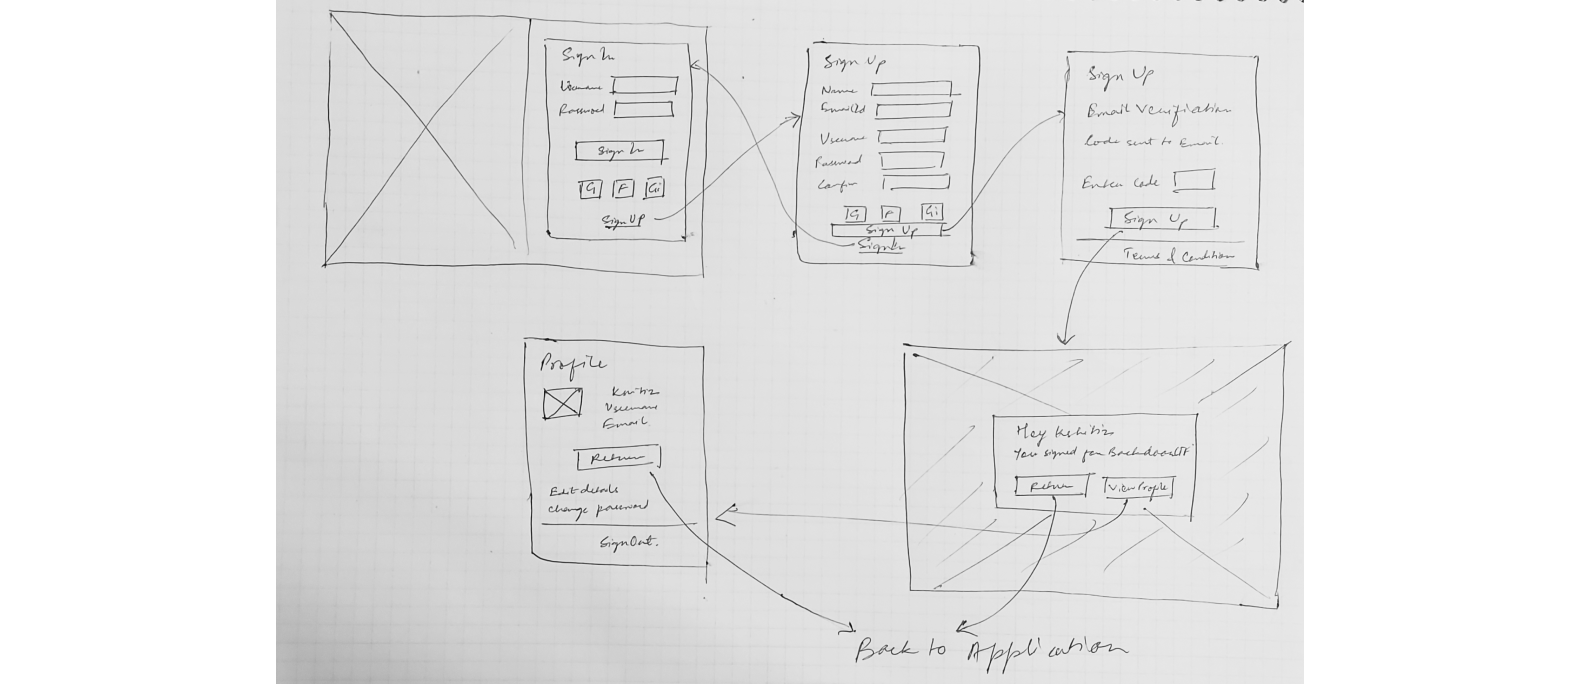 Sign In
Username
Password
Sign In
G F Gi
Sign UP
Sign Up
Name
Email Id
Username
Password
Confirm
G F Gi
Sign Up
Sign In
Sign Up
Email Verification
Code sent to Email.
Enter Code
Sign Up
Terms & Condition
Profile
Username
Email
Return
Edit details
change password
Sign Out.
Hey Kshitiz
You signed for
Return View Profile
Back to Application